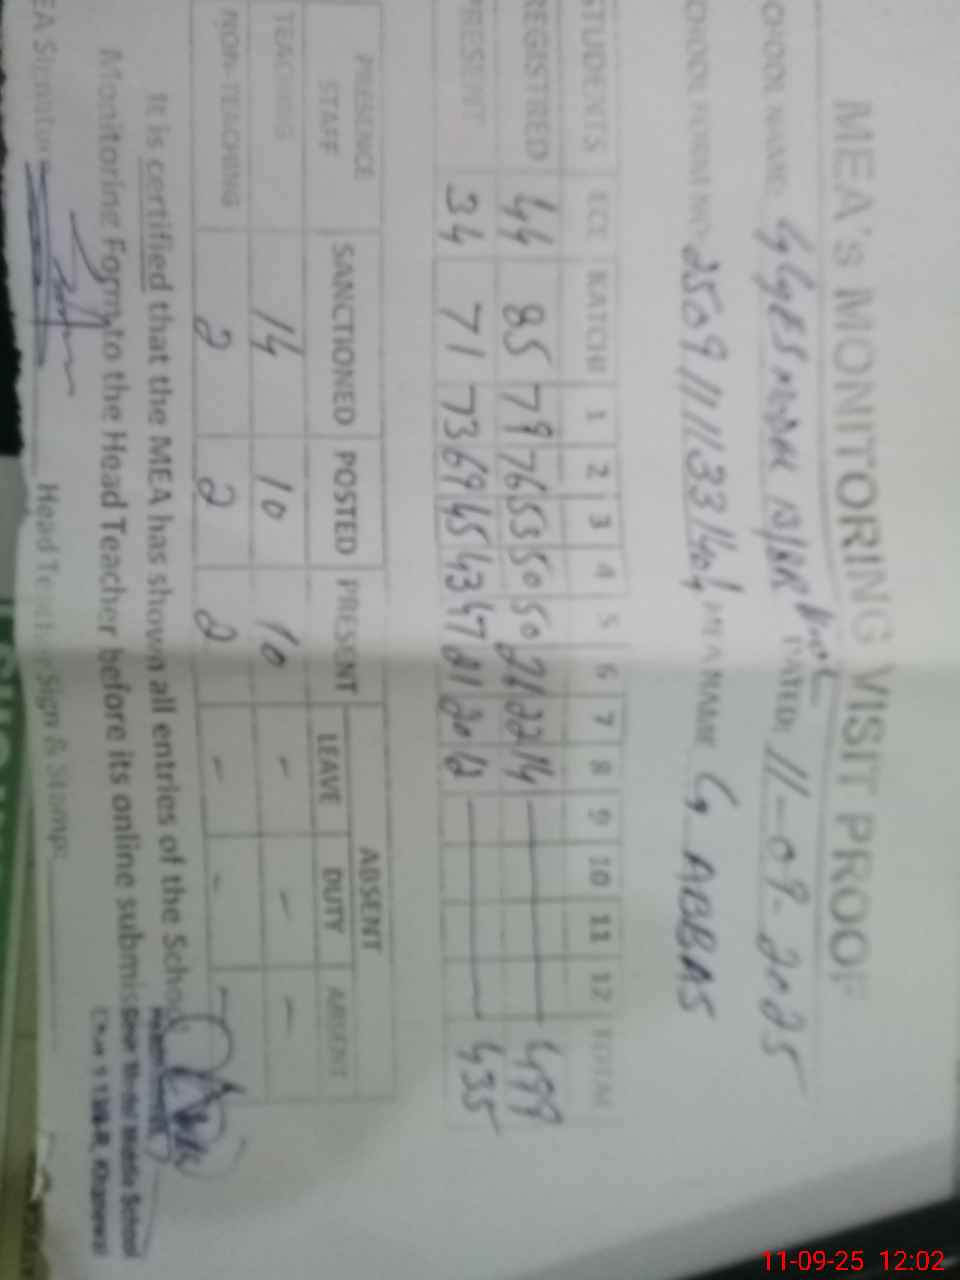 MEA's MONITORING VISIT PROOF
DATED 11-09-2025
MEA NAME G ABBAS
STUDENTS ECE KATCHI 1 2 3 4 5 6 7 8 9 10 11 12 TOTAL
REGISTRED 44 85 79 76 53 50 50 26 22 14 499
PRESENT 34 71 73 69 45 43 47 21 20 12 435
PRESENCE STAFF SANCTIONED POSTED PRESENT ABSENT
LEAVE DUTY ABSENT
TEACHING 14 10 10 - - -
NON-TEACHING 2 2 2 - - -
It is certified that the MEA has shown all entries of the School
Monitoring Form to the Head Teacher before its online submis
Head Teacher Sign & Stamp:
Model Middle School
Khanewal
11-09-25 12:02